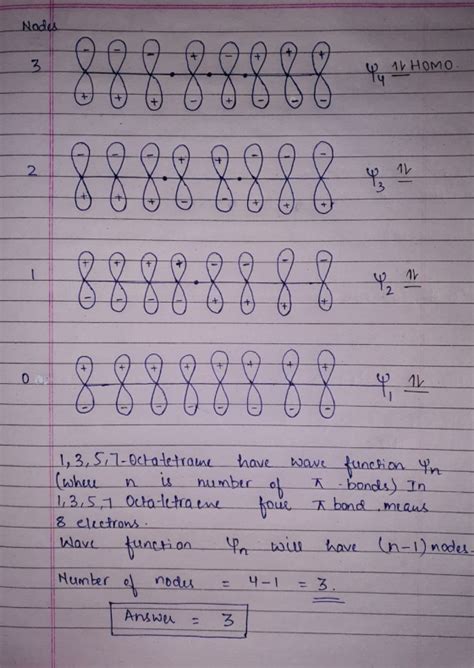 Nodes
3 - - - + - + + + ψ4 ⥮ HOMO.
+ + + - + - - -
2 - - - + + - - - ψ3 ⥮
+ + + - - + + +
1 + + + + - - - - ψ2 ⥮
- - - - + + + +
0 + + + + + + + + ψ1 ⥮
- - - - - - - -
1,3,5,7-Octatetraene have wave function ψn
(where n is number of π-bonds) In
1,3,5,7 Octatetraene four π bond means
8 electrons.
Wave function ψn will have (n-1) nodes.
Number of nodes = 4-1 = 3.
Answer = 3